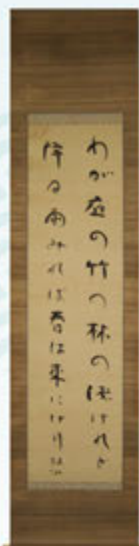 わが庭の竹の林の浅けれと
降る雨みれは春は来にけり